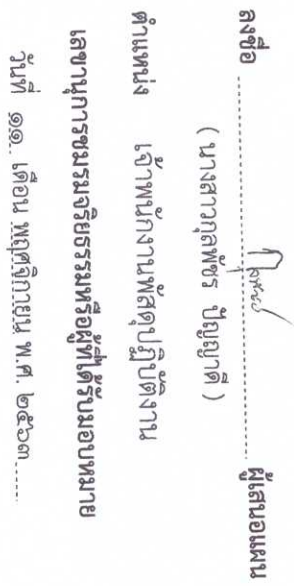 ลงชื่อ ............................................ ผู้เสนอแผน
( นางสาวกุลพัชร ปัญญาดี )
ตำแหน่ง เจ้าพนักงานพัสดุปฏิบัติงาน
เลขานุการชมรมจริยธรรมหรือผู้ที่ได้รับมอบหมาย
วันที่ ๑๑ เดือน พฤศจิกายน พ.ศ. ๒๕๖๓